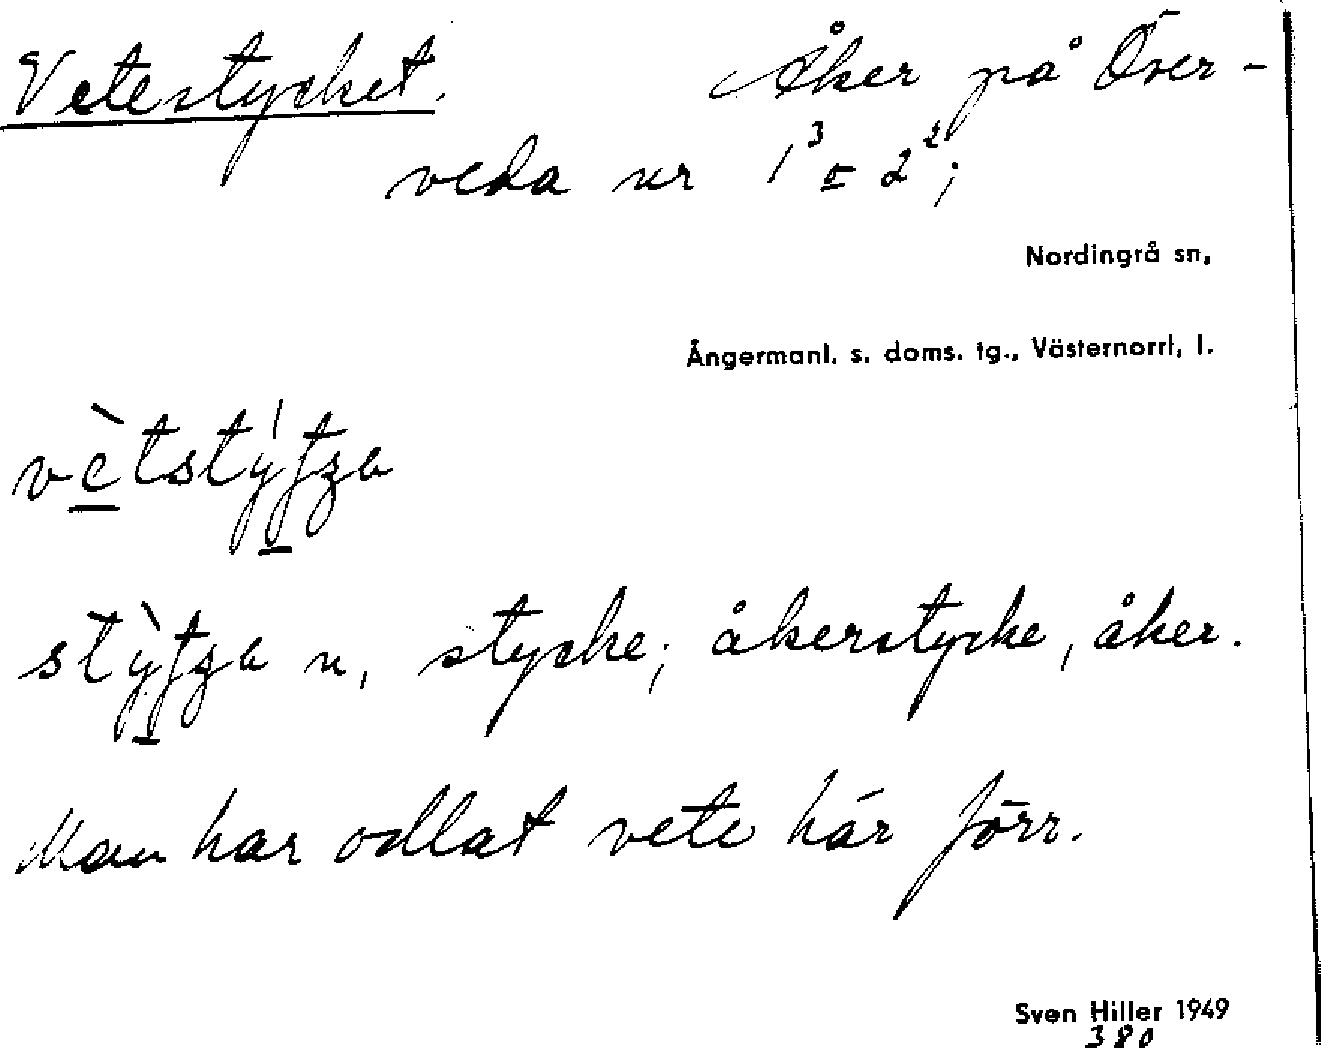 Vetestycket. Åker på Över-
veda nr 1³ o 2²;
Nordingrå sn,
Ångermanl. s. doms. tg., Västernorrl, l.
vètstýtza
stỳtza n, stycke; åkerstycke, åker.
Man har odlat vete här förr.
Sven Hiller 1949
380